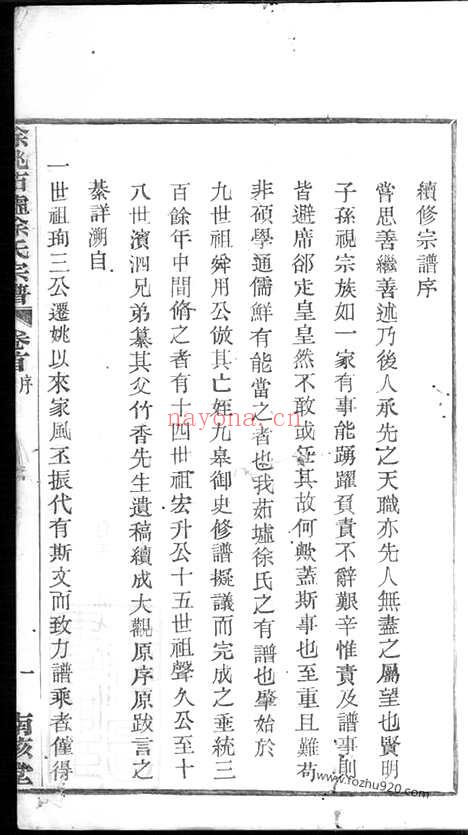 續修宗譜序
嘗思善繼善述乃後人承先之天職亦先人無盡之屬望也賢明
子孫視宗族如一家有事能踴躍負責不辭艱辛惟責及譜事則
皆避席郤走皇皇然不敢或任其故何歟蓋斯事也至重且難苟
非碩學通儒鮮有能當之者也我茹墟徐氏之有譜也肇始於
九世祖舜用公倣其亡姪九皋御史修譜擬議而完成之垂統三
百餘年中間脩之者有十四世祖宏升公十五世祖聲久公至十
八世濱泗兄弟纂其父竹香先生遺稿續成大觀原序原跋言之
綦詳溯自
一世祖珣三公遷姚以來家風丕振代有斯文而致力譜乘者僅得
餘姚茹墟徐氏宗譜
卷首
序
一
南陔堂
nayona.cn
www.fozhu920.com